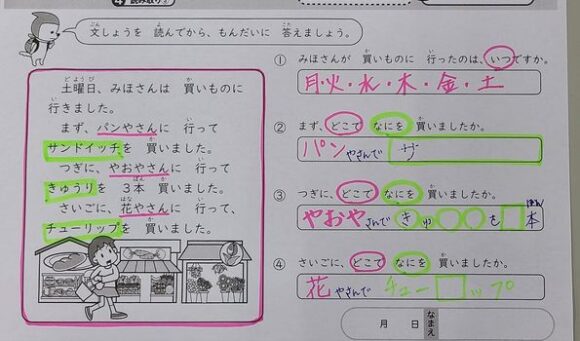 ④ 読み取り②
文しょうを 読んでから、もんだいに 答えましょう。
土曜日、みほさんは 買いものに
行きました。
まず、パンやさんに 行って
サンドイッチを 買いました。
つぎに、やおやさんに 行って
きゅうりを 3本 買いました。
さいごに、花やさんに 行って、
チューリップを 買いました。
① みほさんが 買いものに 行ったのは、いつですか。
月・火・水・木・金・土
② まず、どこで なにを 買いましたか。
パンやさんで サ
③ つぎに、どこで なにを 買いましたか。
やおやさんで きゅ〇〇を□本
④ さいごに、どこで なにを 買いましたか。
花やさんで チュー□ップ
月 日 なまえ